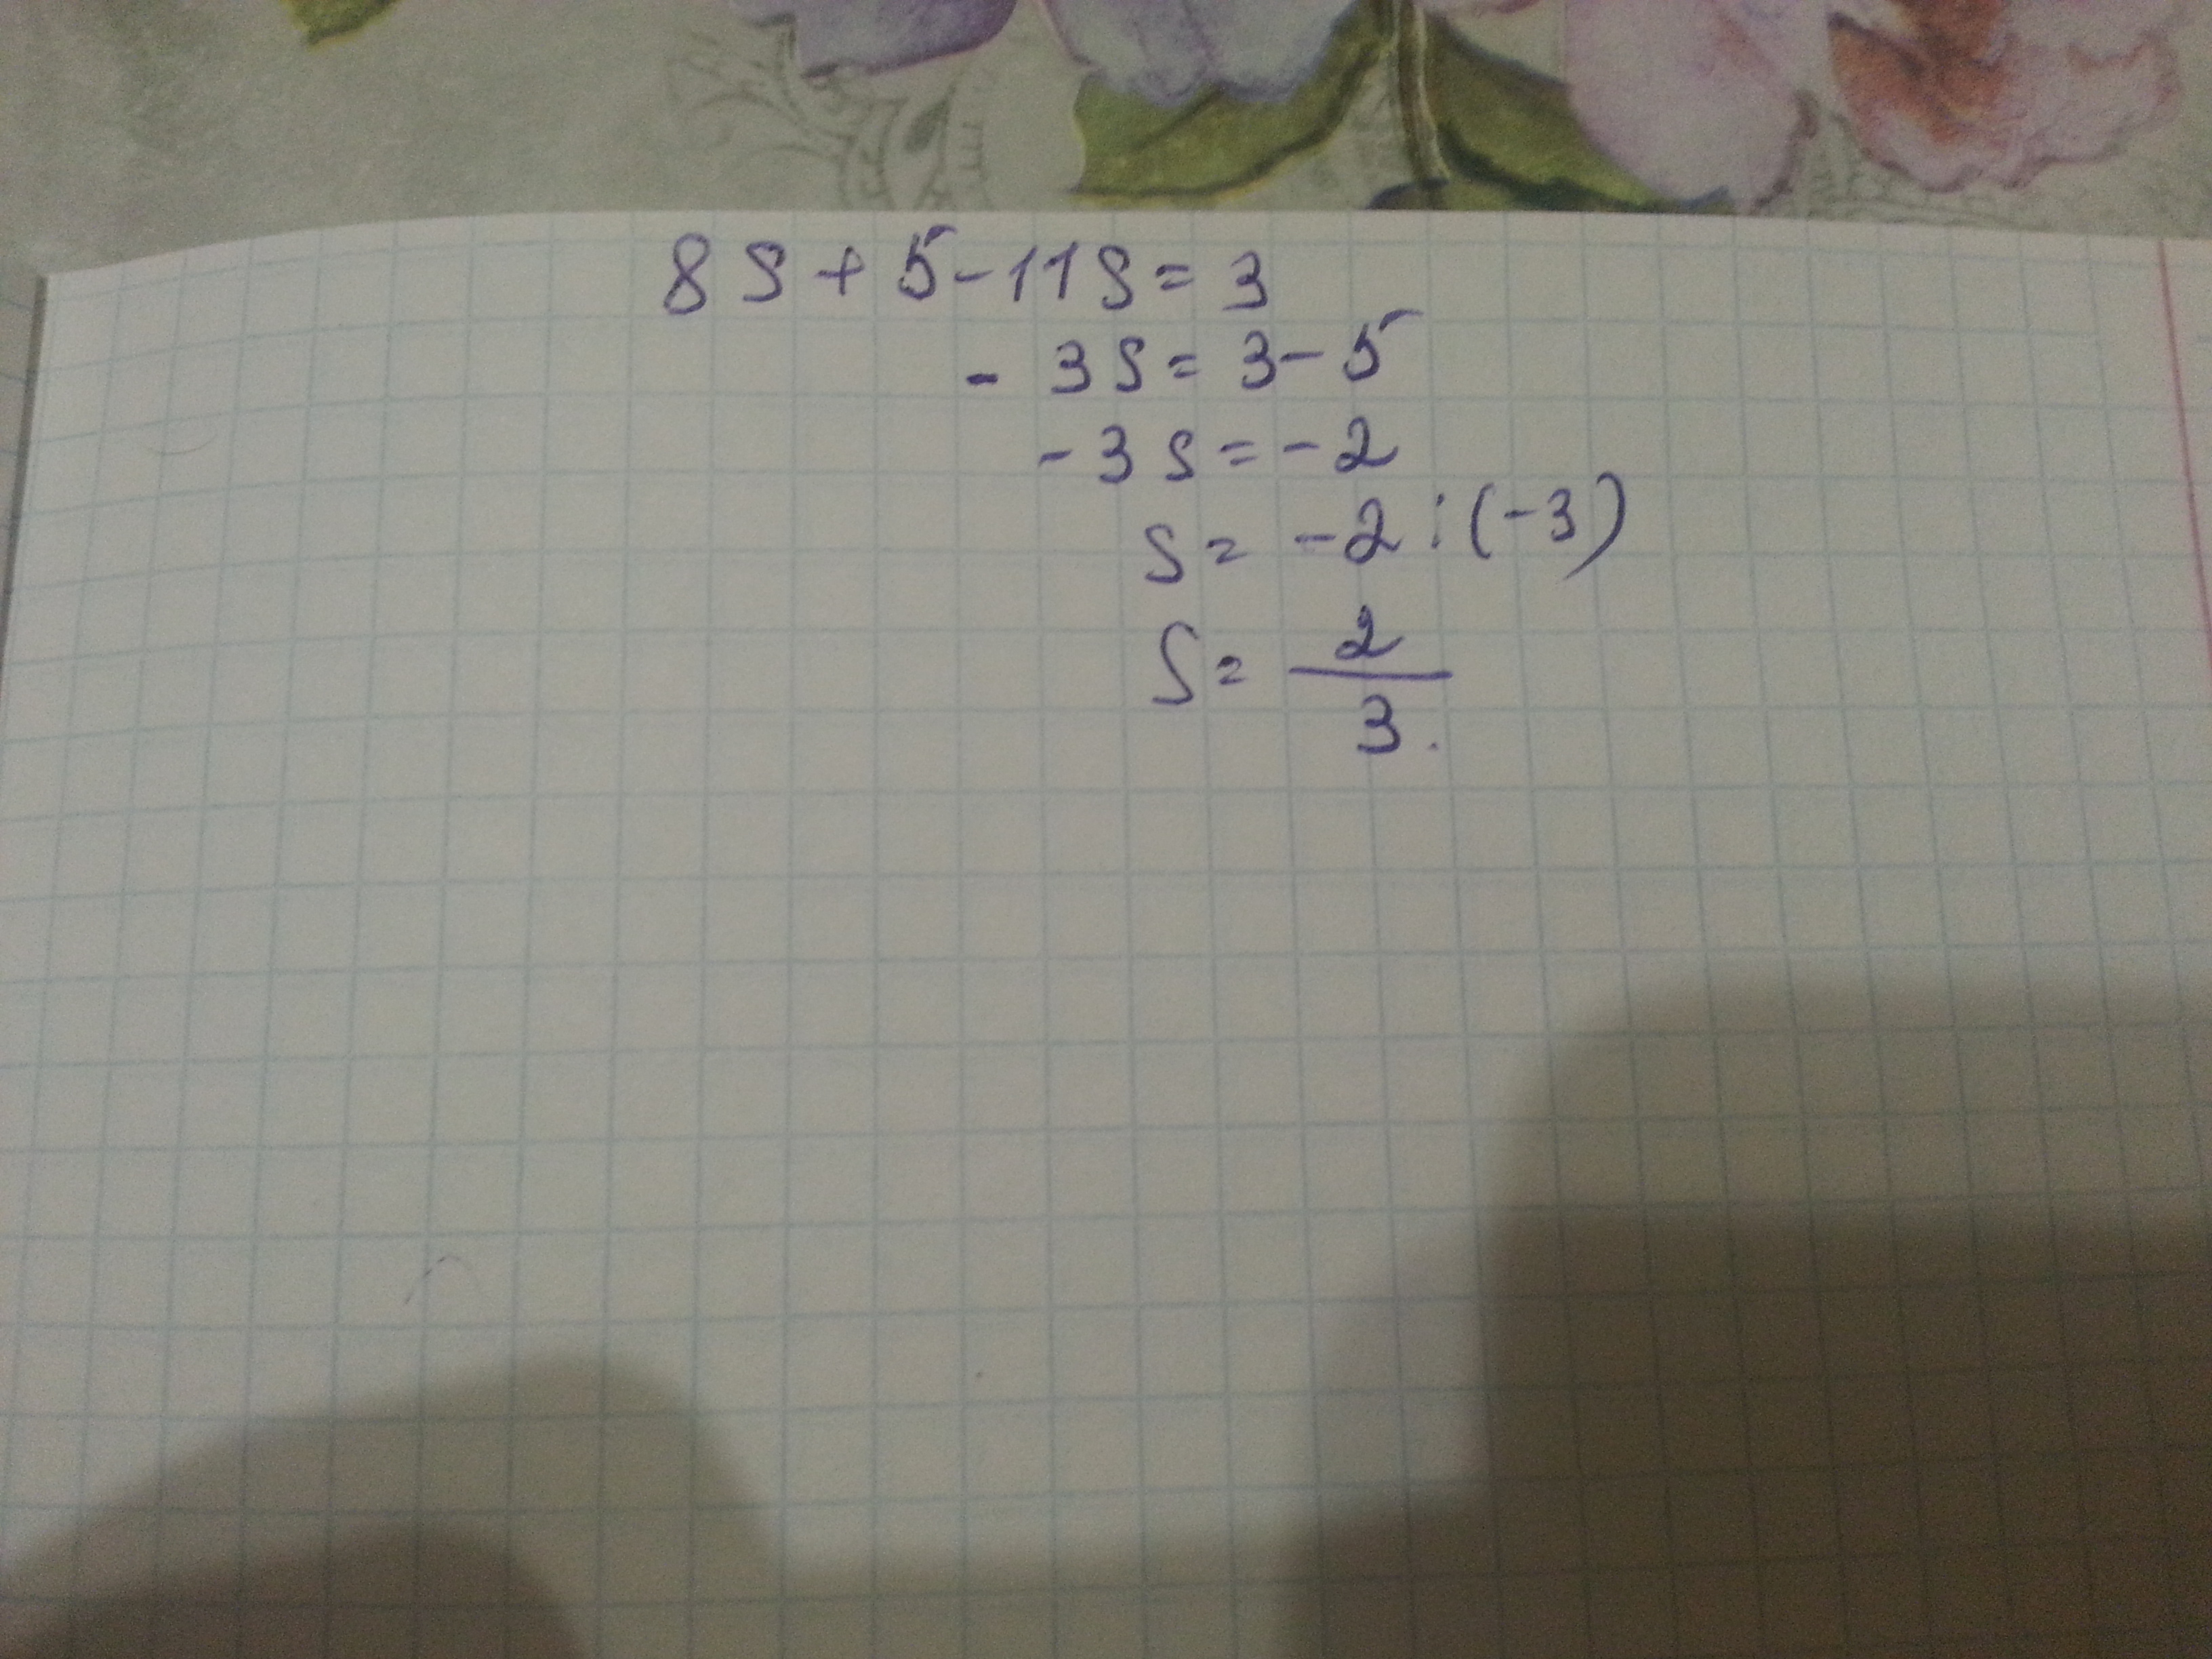 8S + 5 - 11S = 3
- 3S = 3 - 5
- 3S = - 2
S = - 2 : (-3)
S = 2/3.